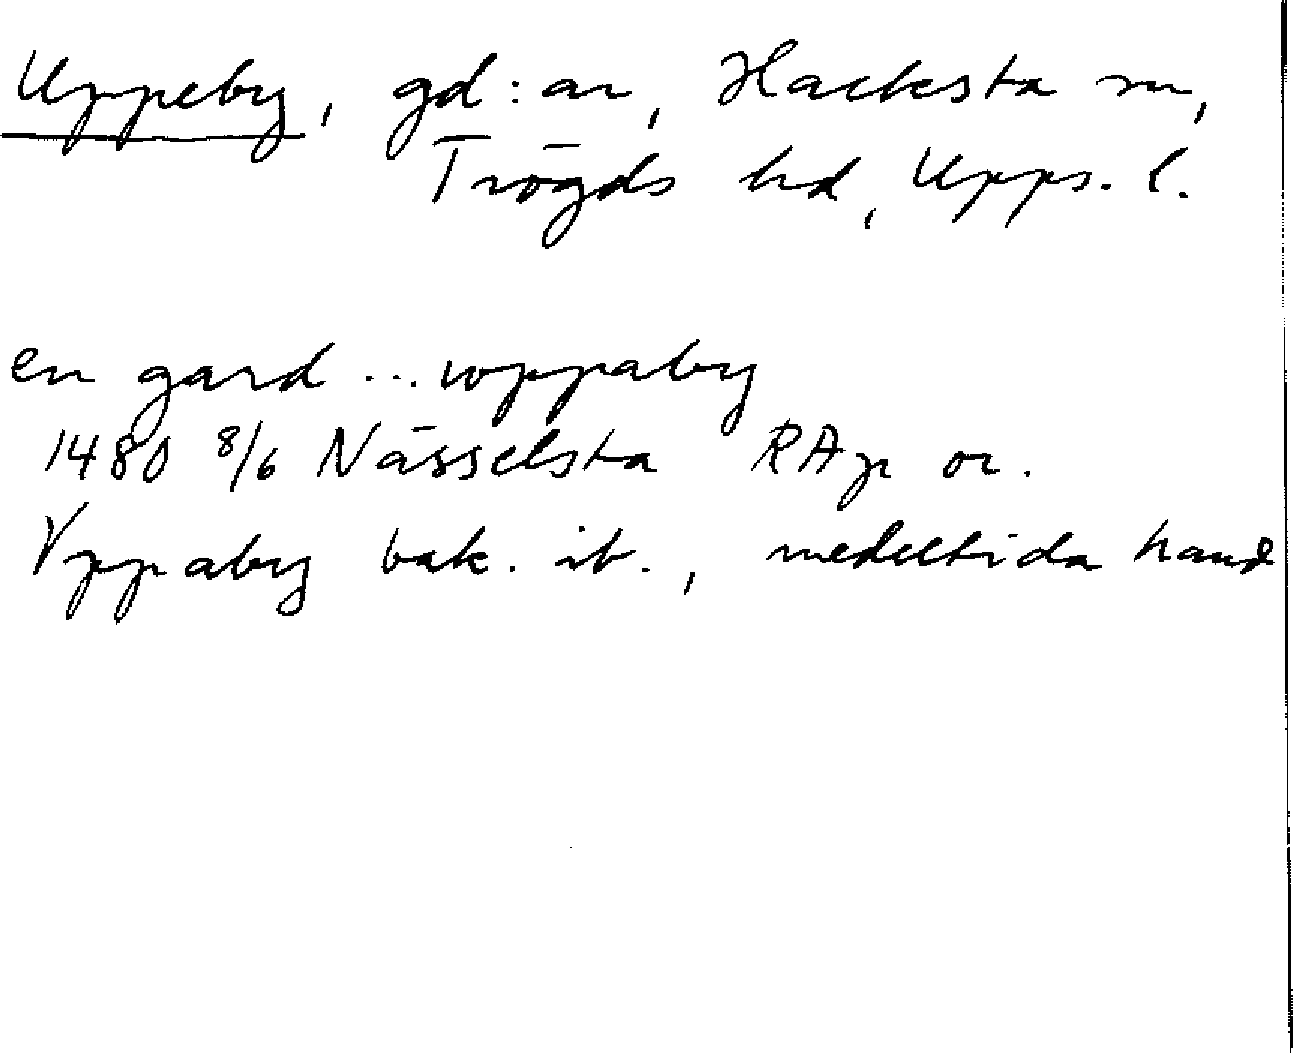 Uppeby, gd:ar, Hacksta sn,
Trögds hd, Upps. l.
en gard ... wppaby
1480 8/6 Nässelsta RAp or.
Vppaby bak. ib., medeltida hand